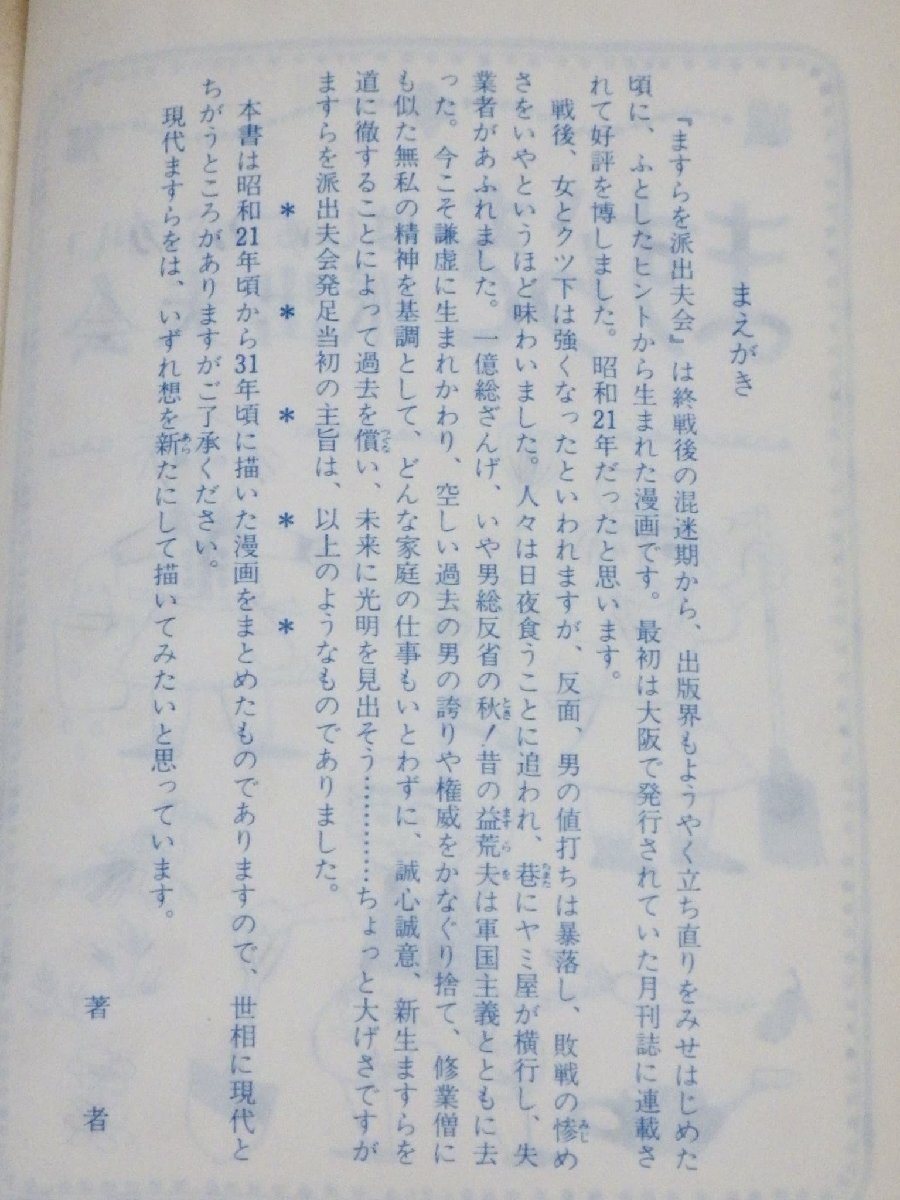 まえがき
『ますらを派出夫会』は終戦後の混迷期から、出版界もようやく立ち直りをみせはじめた
頃に、ふとしたヒントから生まれた漫画です。最初は大阪で発行されていた月刊誌に連載さ
れて好評を博しました。昭和21年だったと思います。
戦後、女とクツ下は強くなったといわれますが、反面、男の値打ちは暴落し、敗戦の惨め
さをいやというほど味わいました。人々は日夜食うことに追われ、巷にヤミ屋が横行し、失
業者があふれました。一億総ざんげ、いや男総反省の秋！昔の益荒夫は軍国主義とともに去
った。今こそ謙虚に生まれかわり、空しい過去の男の誇りや権威をかなぐり捨て、修業僧に
も似た無私の精神を基調として、どんな家庭の仕事もいとわずに、誠心誠意、新生ますらを
道に徹することによって過去を償い、未来に光明を見出そう…………ちょっと大げさですが
ますらを派出夫会発足当初の主旨は、以上のようなものでありました。
＊　＊　＊　＊　＊
本書は昭和21年頃から31年頃に描いた漫画をまとめたものでありますので、世相に現代と
ちがうところがありますがご了承ください。
現代ますらをは、いずれ想を新たにして描いてみたいと思っています。
著者